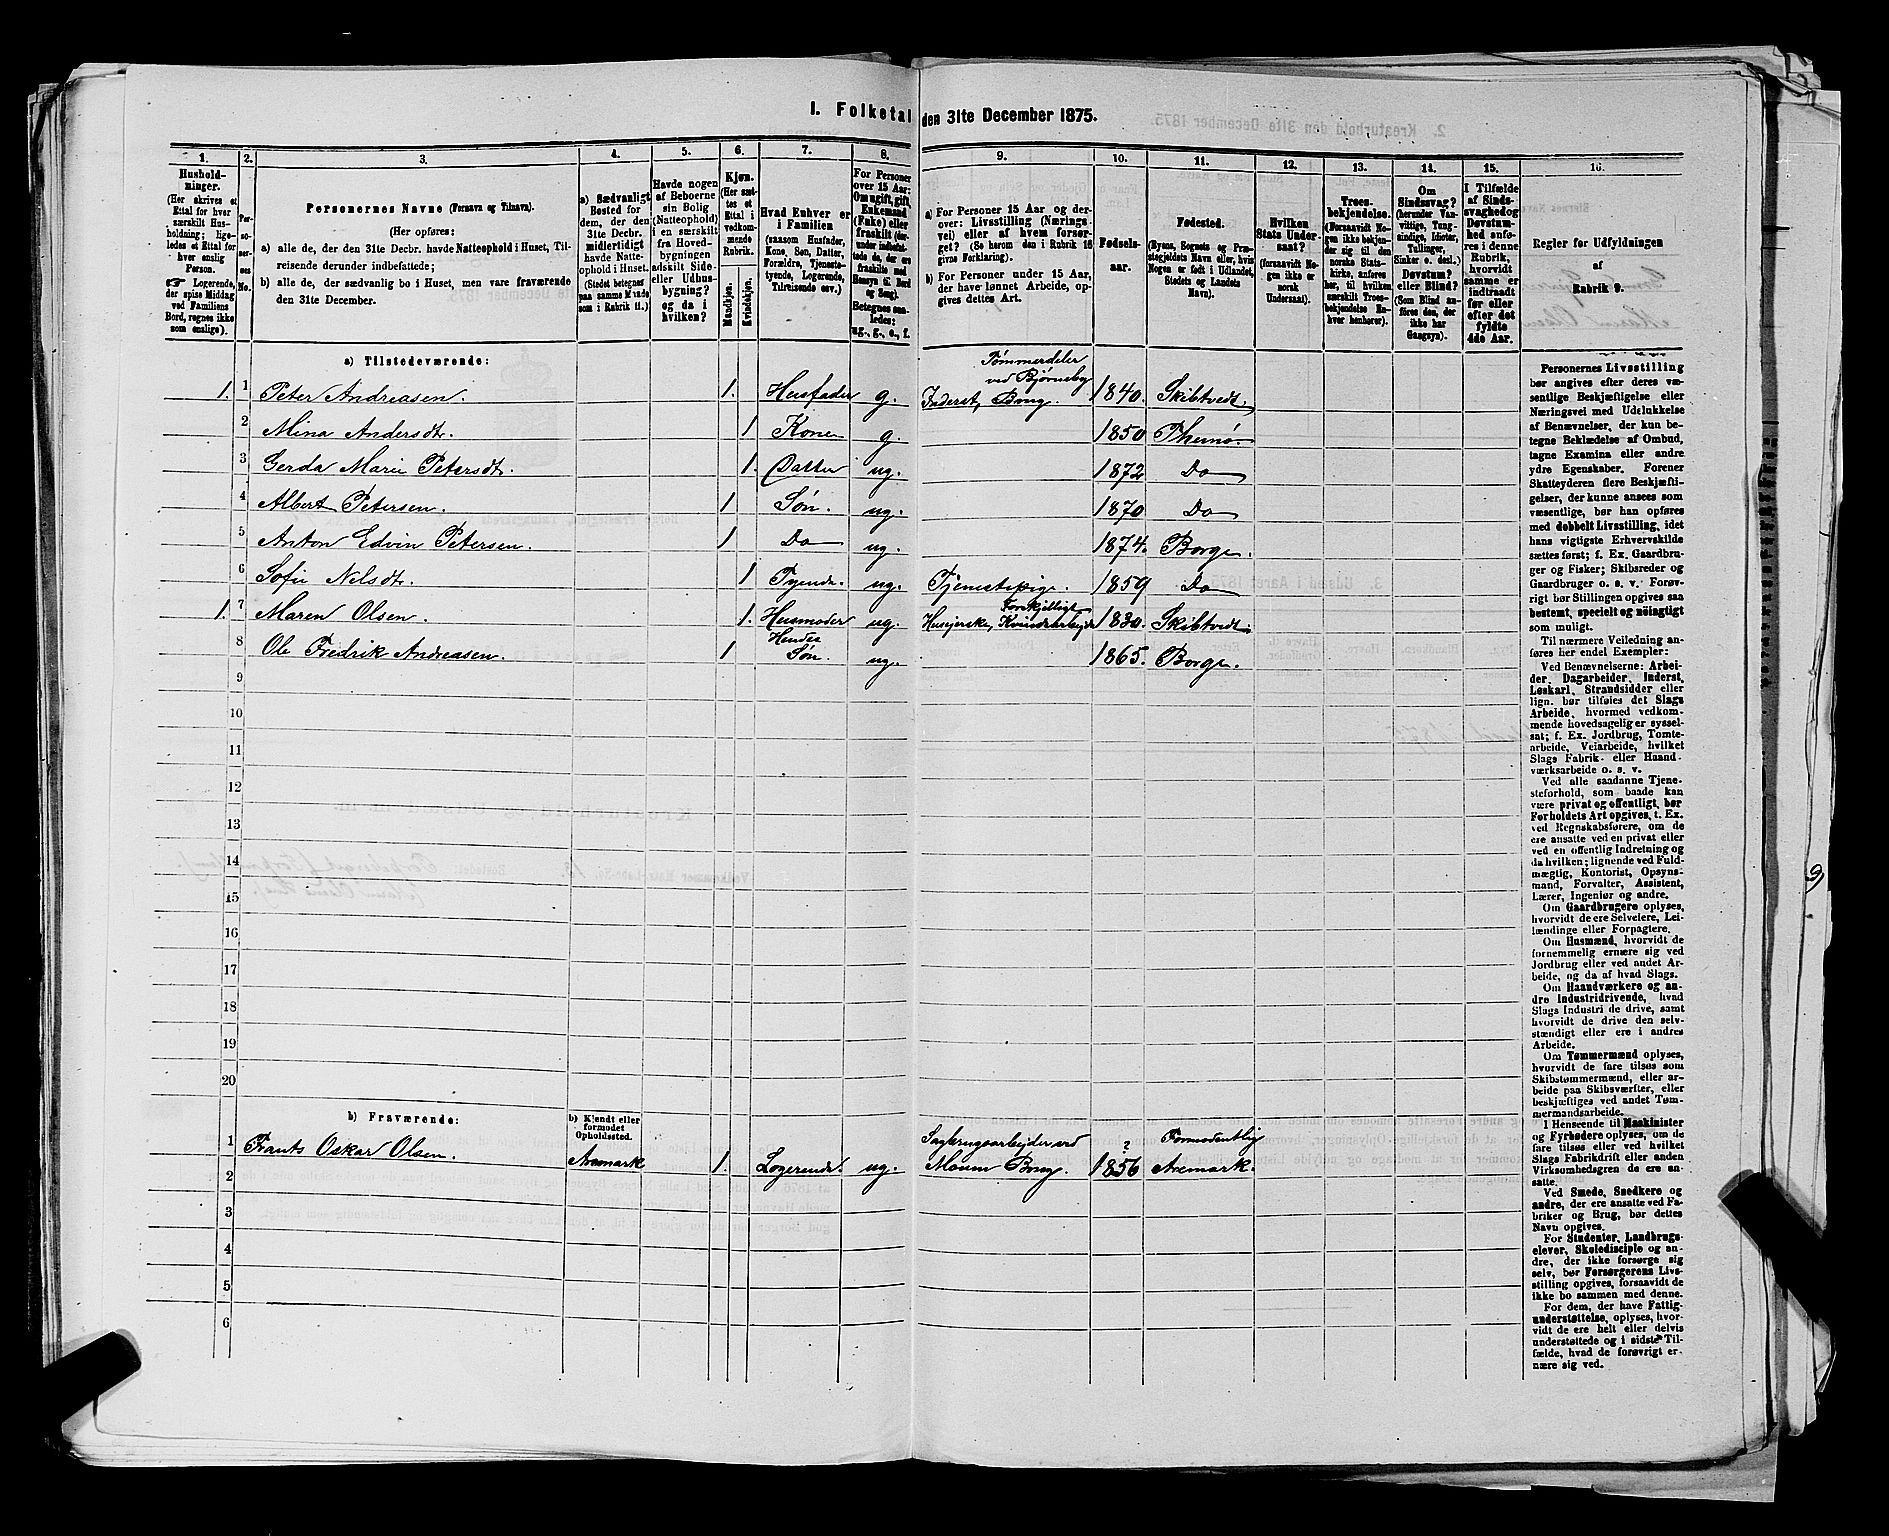 I. Folketal den 31te December 1875.
1. 2. 3. 4. 5. 6. 7. 8. 9. 10. 11. 12. 13. 14. 15. 16.
Hushold-
ninger.
(Her skrives et
Ettal for hver
særskilt Hus-
holdning; lige-
ledes et Ettal for
hver enslig
Person.
☛ Logerende,
der spise Middag
ved Familiens
Bord, regnes ikke
som enslige).
Per-
so-
ner-
nes
No.
Personernes Navne (Fornavn og Tilnavn).
(Her opføres:
a) alle de, der den 31te Decbr. havde Natteophold i Huset, Til-
reisende derunder indbefattede;
b) alle de, der sædvanlig bo i Huset, men vare fraværende
den 31te December.
a) Sædvanligt
Bosted for
dem, der den
31te Decbr.
midlertidigt
havde Natte-
ophold i Huset.
(Stedet betegnes
paa samme Maade
som i Rubrik 11.)
Havde nogen
af Beboerne
sin Bolig
(Natteophold)
i en særskilt
fra Hoved-
bygningen
adskilt Side-
eller Udhus-
bygning?
og da i
hvilken?
Kjøn.
(Her sæt-
tes et
Ettal i
vedkom-
mende
Rubrik.
Mandkjøn.
Kvindekjøn.
Hvad Enhver er
i Familien
(saasom Husfader,
Kone, Søn, Datter,
Forældre, Tjeneste-
tyende, Logerende,
Tilreisende osv.)
For Personer
over 15 Aar:
Om ugift, gift,
Enkemand
(Enke) eller
fraskilt
Betegnes saa-
ledes:
ug., g., e., f.
a) For Personer 15 Aar og der-
over: Livsstilling (Nærings-
vei) eller af hvem forsør-
get? (Se herom den i Rubrik 16
givne Forklaring).
b) For Personer under 15 Aar,
der have lønnet Arbeide, op-
gives dettes Art.
Fødsels-
aar.
Fødested.
(Byens, Sognets og Præ-
stegjeldets Navn eller, hvis
Nogen er født i Udlandet,
Stedets og Landets
Navn).
Hvilken
Stats Under-
saat?
(forsaavidt No-
gen ikke er
norsk
Undersaat).
Troes-
bekjendelse.
(Forsaavidt No-
gen ikke bekjen-
der sig til den
norske Stats-
kirke, anføres
her, til hvilken
særskilt Troes-
bekjendelse En-
hver henhører).
Om
Sindssvag?
(herunder Van-
vittige, Tung-
sindige, Idioter,
Tullinger,
Sinker o. desl.)
Døvstum?
eller Blind?
(Som Blind an-
føres den, der
ikke har
Gangsyn).
I Tilfælde
af Sinds-
svaghed og
Døvstum-
hed anfø-
res i denne
Rubrik,
hvorvidt
samme er
indtraadt
før eller
efter det
fyldte
4de Aar.
Regler for Udfyldningen
af
Rubrik 9.
a) Tilstedeværende:
Tømmerdeler
ved Bjørneby
1. 1 Peter Andreasen. 1. Husfader g. Inderst, Brug. 1840. Skibtvedt.
2 Mina Andersdt. 1 Kone g. 1850 Thunø.
3 Gerda Marie Petersdt. 1. Datter ug. 1872 Do
4 Albert Petersen. 1 Søn. ug. 1870 Do
5 Anton Edvin Petersen. 1 Do ug. 1874. Borge.
6 Sofie Nelsdt. 1 Tyende. ug. Tjenestepige. 1859 Do
Forskjelligt
1. 7 Maren Olsen. 1. Husmoder ug. Huseierske, Kvindearbejde 1830. Skibtvedt.
Hendes
8 Ole Fredrik Andreasen. 1 Søn. ug. 1865. Borge.
9
10
11
12
13
14
15
16
17
18
19
20
b) Fraværende:
b) Kjendt eller
formodet
Opholdssted.
Sagbrugsarbejder ved ? Formodentlig
1 Frants Oskar Olsen. Aremark 1. Logerende. ug. Mosum Brug. 1856 Aremark.
2
3
4
5
6
Personernes Livsstilling
bør angives efter deres væ-
sentlige Beskjæftigelse eller
Næringsvei med Udelukkelse
af Benævnelser, der kun be-
tegne Beklædelse af Ombud,
tagne Examina eller andre
ydre Egenskaber. Forener
Skatteyderen flere Beskjæfti-
gelser, der kunne ansees som
væsentlige, bør han opføres
med dobbelt Livsstilling, idet
hans vigtigste Erhvervskilde
sættes først; f. Ex. Gaardbru-
ger og Fisker; Skibsreder og
Gaardbruger o. s. v. Forøv-
rigt bør Stillingen opgives saa
bestemt, specielt og nöiagtigt
som muligt.
Til nærmere Veiledning an-
føres her endel Exempler:
Ved Benævnelserne: Arbei-
der, Dagarbeider, Inderst,
Løskarl, Strandsidder eller
lign. bør tilføies det Slags
Arbeide, hvormed vedkom-
mende hovedsagelig er syssel-
sat; f. Ex. Jordbrug, Tomte-
arbeide, Veiarbeide, hvilket
Slags Fabrik- eller Haand-
værksarbeide o. s. v.
Ved alle saadanne Tjene-
steforhold, som baade kan
være privat og offentligt, bør
Forholdets Art opgives, t. Ex.
ved Regnskabsførere, om de
ere ansatte ved en privat eller
ved en offentlig Indretning og
da hvilken; lignende ved Fuld-
mægtig, Kontorist, Opsyns-
mand, Forvalter, Assistent,
Lærer, Ingeniør og andre.
Om Gaardbrugere oplyses,
hvorvidt de ere Selveiere, Lei-
lændinge eller Forpagtere.
Om Husmænd, hvorvidt de
fornemmelig ernære sig ved
Jordbrug eller ved andet Ar-
beide, og da af hvad Slags.
Om Haandværkere og an-
dre Industridrivende, hvad
Slags Industri de drive, samt
hvorvidt de drive den selv-
stændigt eller ere i andres
Arbeide.
Om Tømmermænd oplyses,
hvorvidt de fare tilsøs som
Skibstømmermænd, eller ar-
beide paa Skibsværfter, eller
beskjæftiges ved andet Tøm-
mermandsarbeide.
I Henseende til Maskinister
og Fyrbødere oplyses, om de
fare tilsøs eller ved hvilket
Slags Fabrikdrift eller anden
Virksomhedsgren de ere an-
satte.
Ved Smede, Snedkere og
andre, der ere ansatte ved Fa-
briker og Brug, bør dettes
Navn opgives.
For Studenter, Landbrugs-
elever, Skoledisciple og an-
dre, der ikke forsørge sig
selv, bør Forsørgerens Livs-
stilling opgives, forsaavidt de
ikke bo sammen med denne.
For dem, der have Fattig-
understøttelse, oplyses, hvor-
vidt de ere helt eller delvis
understøttede og i sidste Til-
fælde, hvad de forøvrigt er-
nære sig ved.